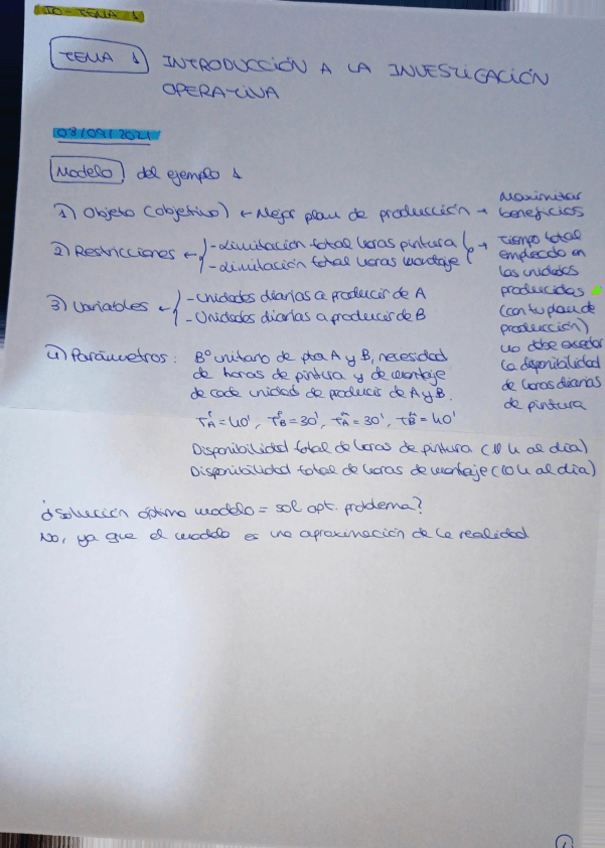 IO - TEMA 1
TEMA 1 INTRODUCCIÓN A LA INVESTIGACIÓN
OPERATIVA
03/09/2021
Modelo del ejemplo 1
1) Objeto (objetivo) ← Mejor plan de producción → Maximizar beneficios
2) Restricciones ← { - Limitación total horas pintura
- Limitación total horas montaje } → Tiempo total
empleado en
las unidades
producidas
(con tu plan de
producción)
no debe exceder
la disponibilidad
de horas diarias
de pintura
3) Variables ← { - Unidades diarias a producir de A
- Unidades diarias a producir de B
4) Parámetros: Bº unitario de pta A y B, necesidad
de horas de pintura y de montaje
de cada unidad de producir de A y B.
T^P_A = 40', T^P_B = 30', T^M_A = 30', T^M_B = 40'
Disponibilidad total de horas de pintura (10 h al día)
Disponibilidad total de horas de montaje (10 h al día)
¿Solución óptima modelo = sol opt. problema?
No, ya que el modelo es una aproximación de la realidad
1